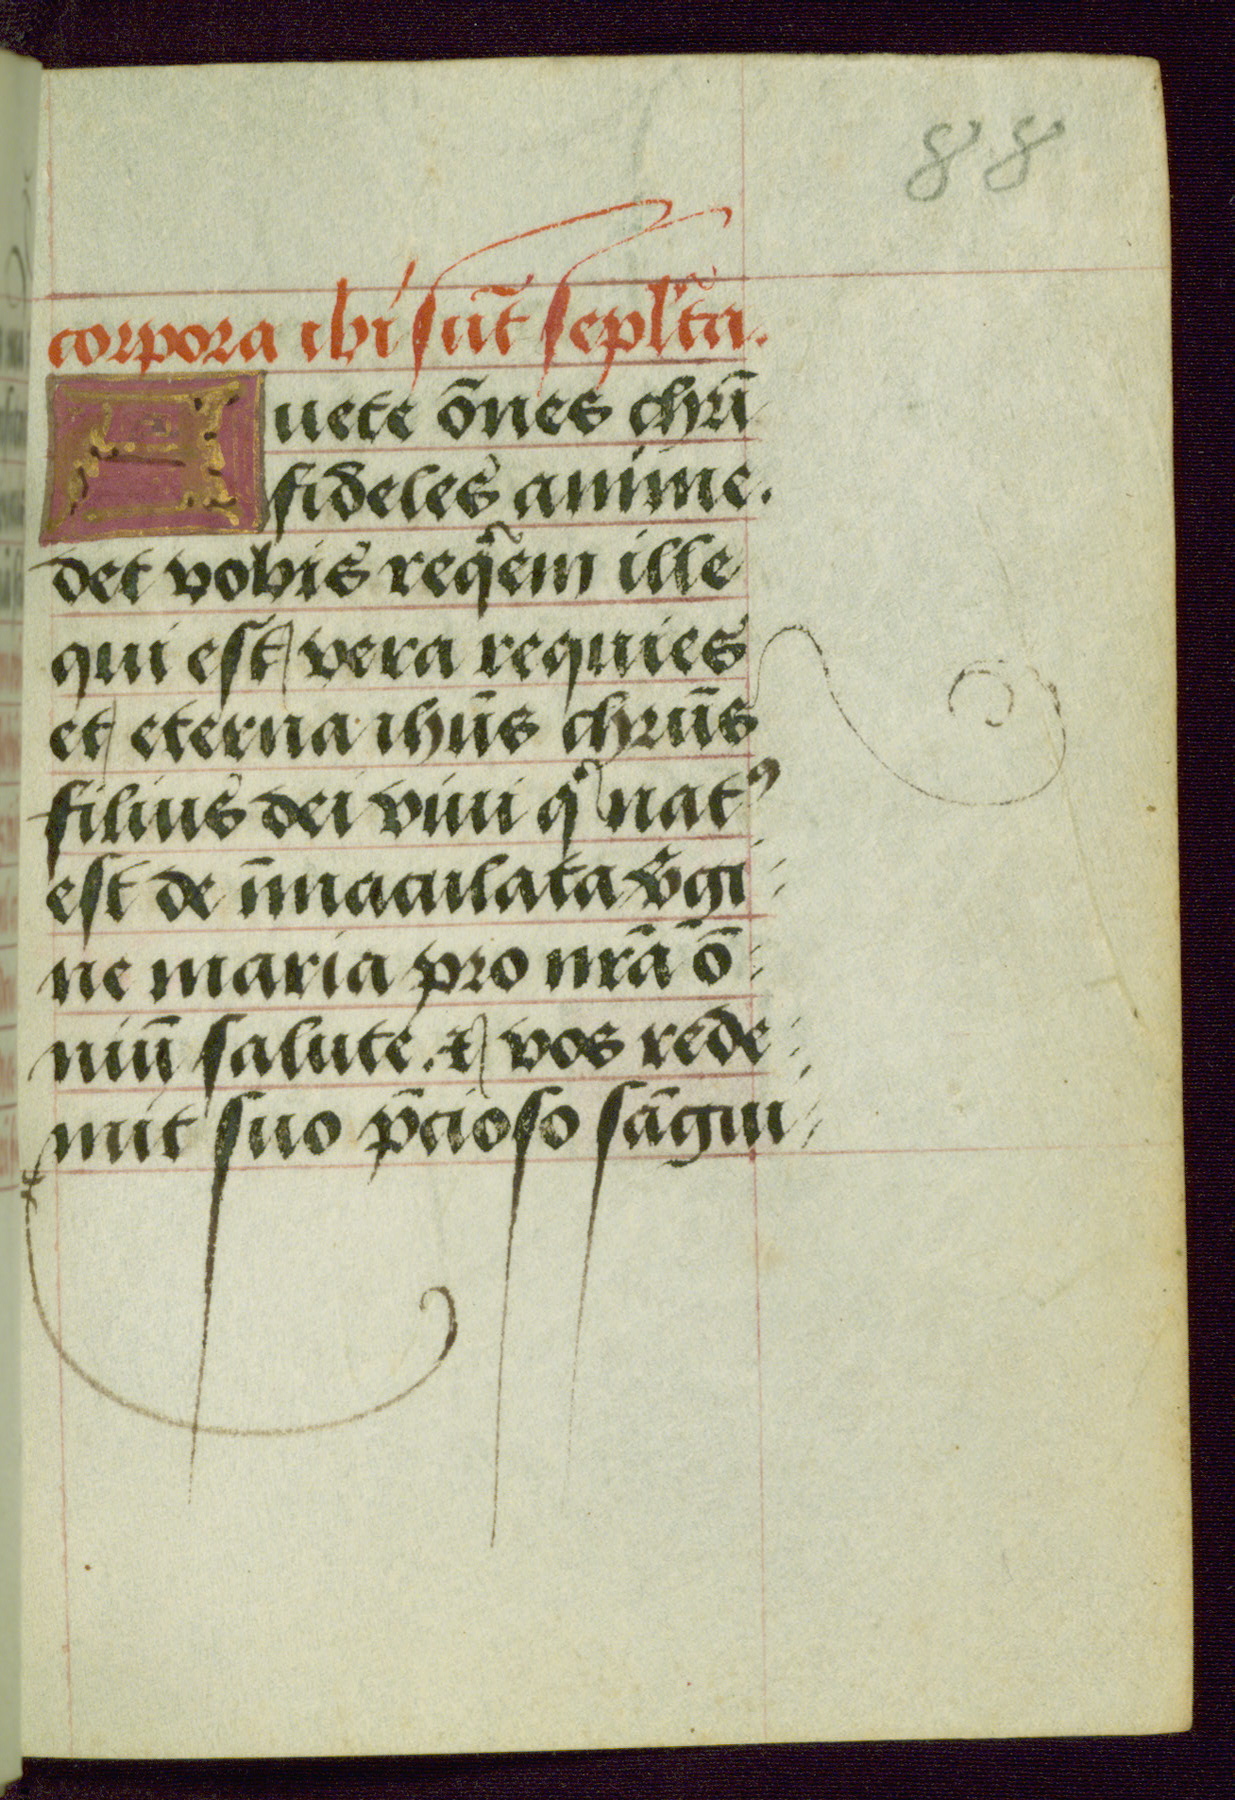 88
corpora ibi sūt sepl'ta.
Auete ōnes chrī
fideles anime.
det vobis reqͥem ille
qui est vera requies
et eterna ihūs chrūs
filius dei viui qͥ natꝰ
est de īmaculata v̓gi
ne maria pro nrā ō
niū salute. ⁊ vos rede
mit suo p̄cioso sāgui